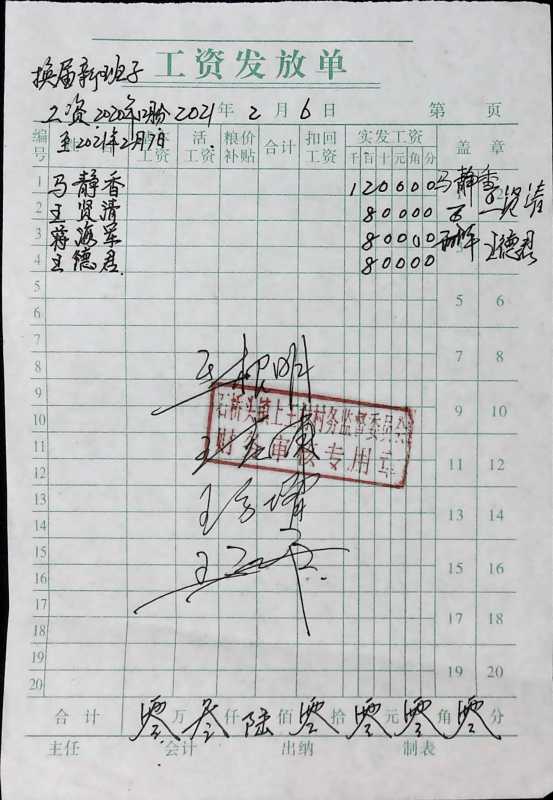 工资发放单
换届新班子
工资 2020年12月份 2021年2月6日 第 页
至2021年2月7日
编号 工资 活工资 粮价补贴 合计 扣回工资 实发工资 千百十元角分 盖章
1 马静香 120000 马静香 2
2 王贤清 80000 王贤清
3 蒋海军 80000
4 王德君 80000 王德君
5 5 6
6
7 7 8
8
9 9 10
10
11 11 12
12
13 13 14
14
15 15 16
16
17 17 18
18
19 19 20
20
石桥头镇上王村村务监督委员会
财务审核专用章
合计 零万叁仟陆佰零拾零元零角零分
主任 会计 出纳 制表